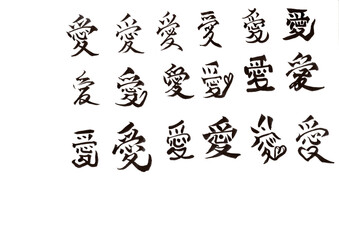 愛愛愛愛愛愛
愛愛愛愛愛愛
愛愛愛愛愛愛